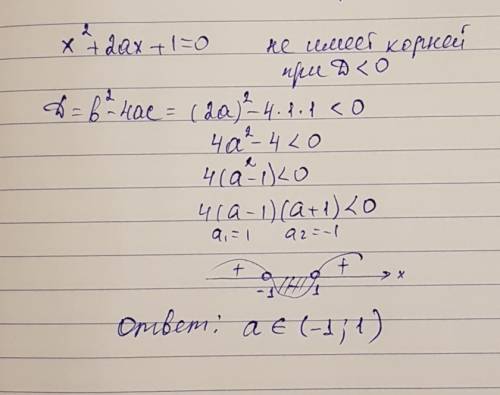 x²+2ax+1=0 не имеет корней
при D<0
D=b²-4ac=(2a)²-4·1·1<0
4a²-4<0
4(a²-1)<0
4(a-1)(a+1)<0
a₁=1 a₂=-1
+ +
-1 1 x
Ответ: a∈(-1;1)